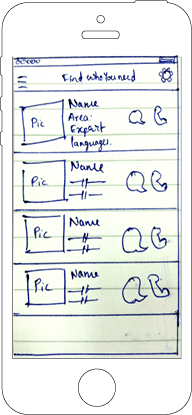 Find who You need
Pic
Name
Area:
Expert
languages.
Pic
Name
Pic
Name
Pic
Name